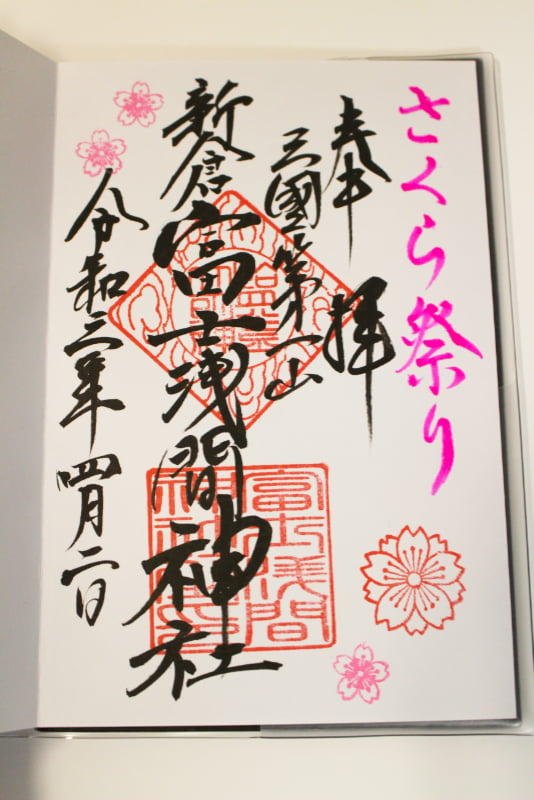 さくら祭り
奉拝
三國第一山
新倉富士浅間神社
令和二年四月二日
富士浅間